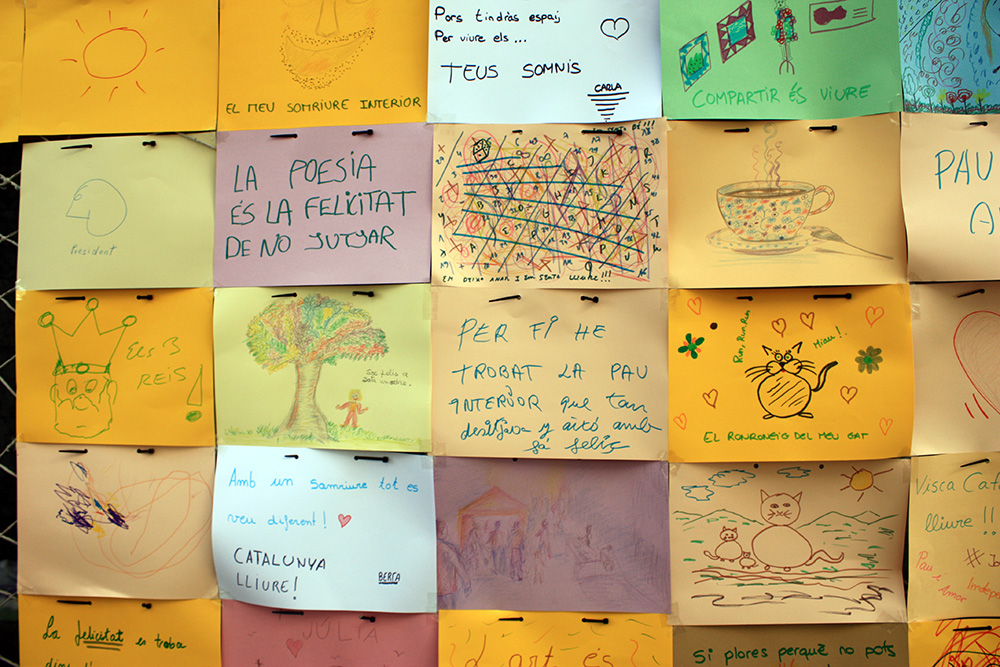 EL MEU SOMRIURE INTERIOR
Pors tindràs espai
Per viure els ...
TEUS SOMNIS
CARLA
COMPARTIR ÉS VIURE
President
LA POESIA
ÉS LA FELICITAT
DE NO JUTJAR
EM DEIXO ANAR I EM SENTO LLIURE!!!
PAU
A
ELS 3
REIS!
PER FI HE
TROBAT LA PAU
INTERIOR que tan
desitjava y aixó amb
fá feliç
Ron, Ron, Ron
Miau!
EL RONRONEIG DEL MEU GAT
Amb un somriure tot es
veu diferent!
CATALUNYA
LLIURE!
BERTA
Visca Cata
lliure!!
#
Pau i
Amor
La felicitat es troba
JÚLIA
d'art és
Si plores perquè no pots